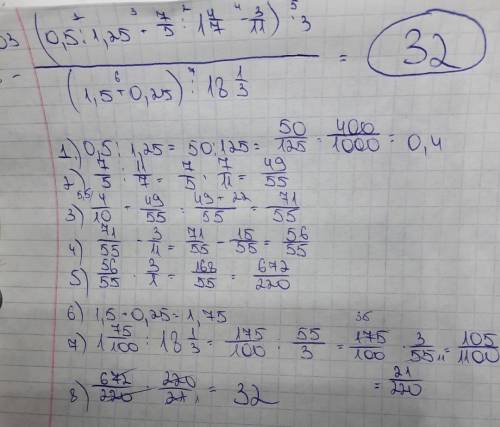 03 (0,5 : 1,25 + 7/5 : 1 4/7 - 3/11) · 3
(1,5 + 0,25) : 18 1/3 = 32
1) 0,5 : 1,25 = 50 : 125 = 50/125 · 400/1000 = 0,4
2) 7/5 : 11/7 = 7/5 · 7/11 = 49/55
3) 4/10 + 49/55 = 49+22/55 = 71/55
4) 71/55 - 3/11 = 71/55 - 15/55 = 56/55
5) 56/55 · 3/1 = 168/55 = 672/220
6) 1,5 + 0,25 = 1,75
7) 1 75/100 : 18 1/3 = 175/100 : 55/3 = 175/100 · 3/55 = 105/1100
= 21/220
8) 672/220 · 220/21 = 32